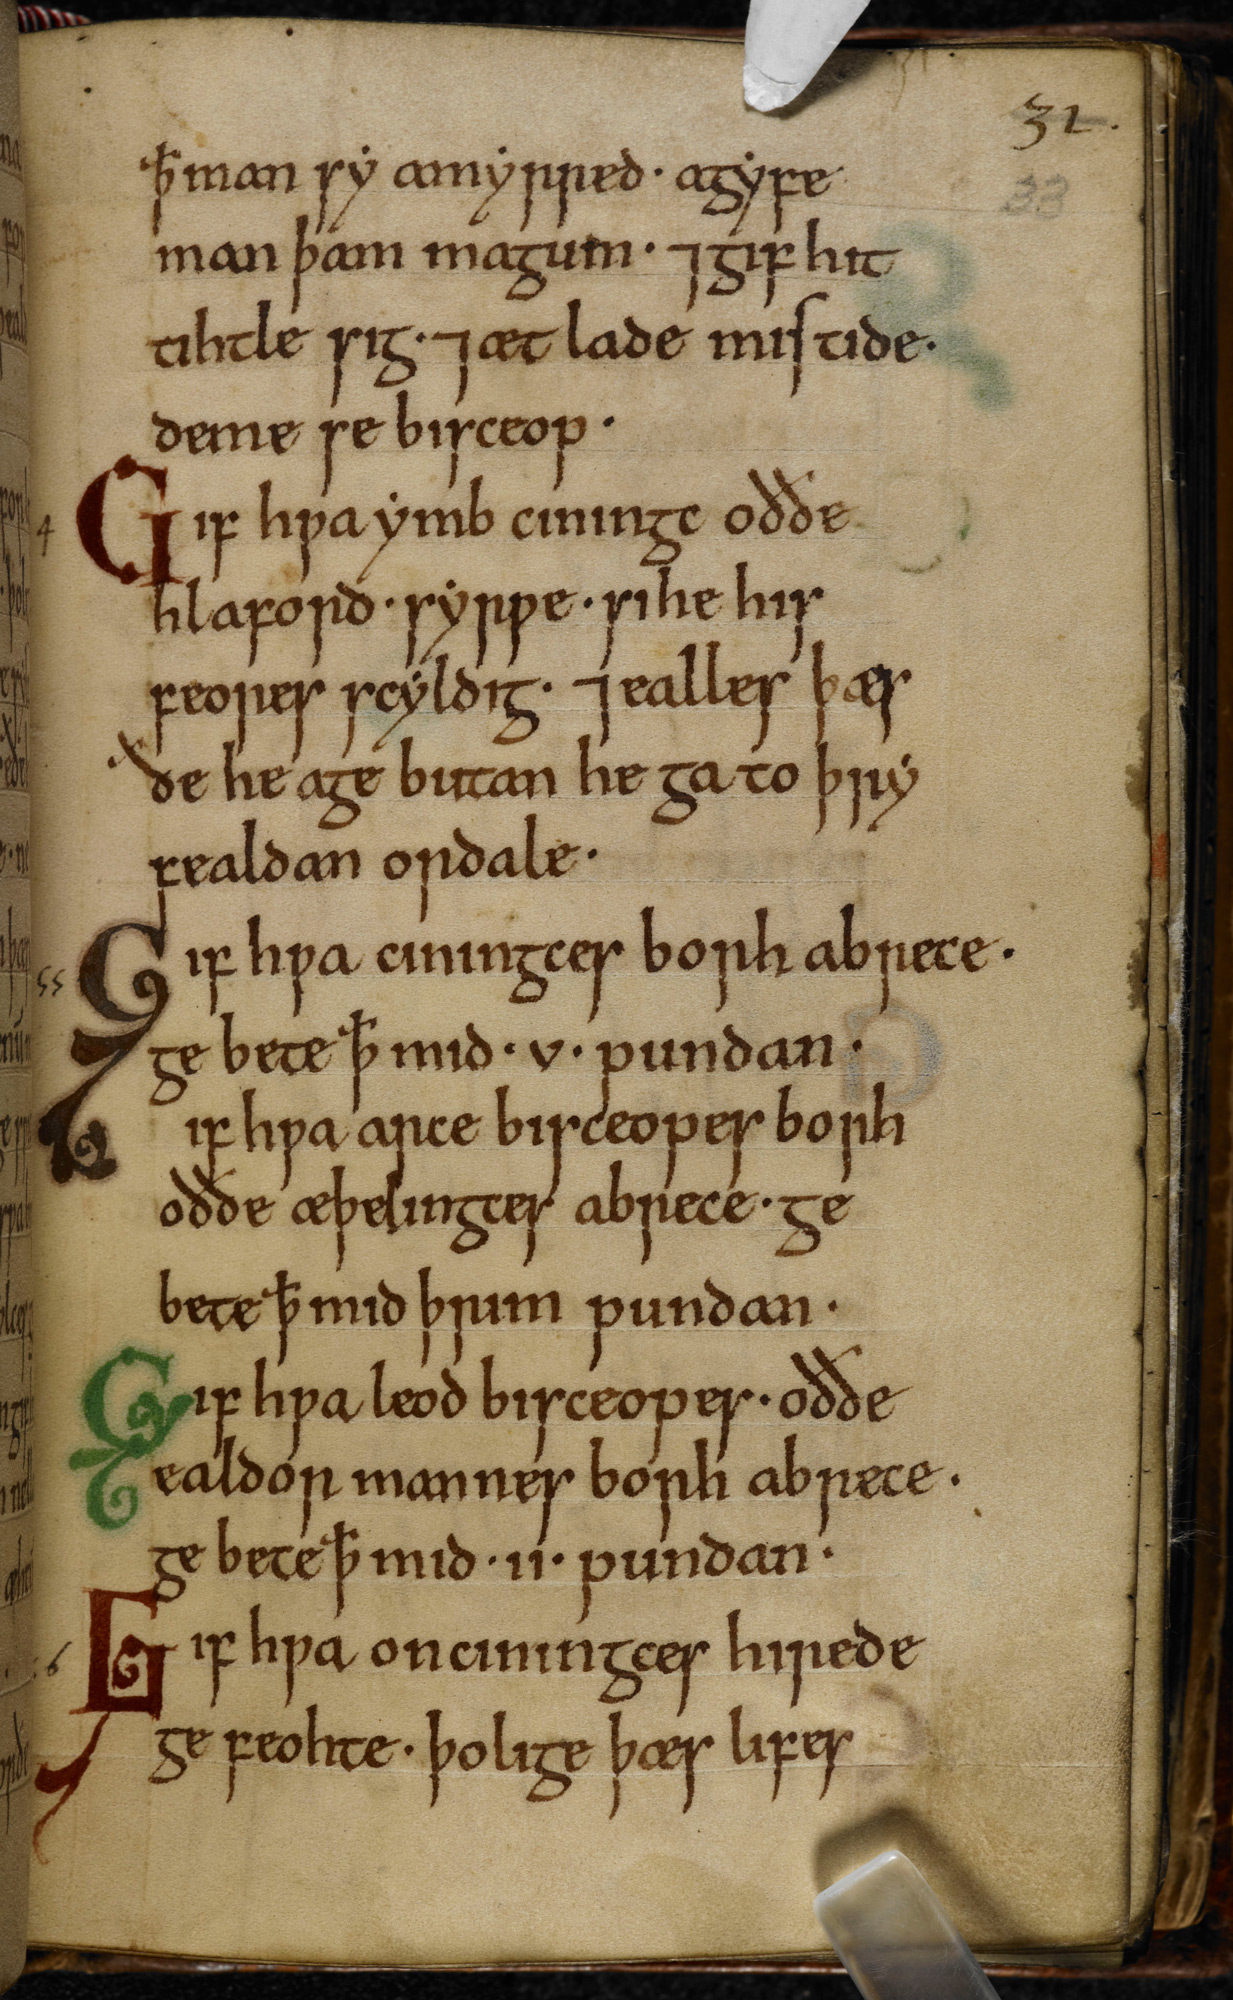 32.
33
ꝥ man sẏ amẏrred· agẏfe
man þam magum· ⁊ gif hit
tihtle sig· ⁊ æt lade mistide·
deme se bisceop·
4 Gif hƿa ẏmb cininge oððe
hlaford· sẏrƿe· si he his
feores scẏldig· ⁊ ealles þæs
ðe he age butan he ga to þrẏ
fealdan ordale·
55 Gif hƿa ciningces borh abrece·
ge bete ꝥ mid· v· pundan·
if hƿa arce bisceopes borh
oððe æþelingces abrece· ge
bete ꝥ mid þrim pundan·
Gif hƿa leod bisceopes· oððe
ealdor mannes borh abrece·
ge bete ꝥ mid· ii· pundan·
6 Gif hƿa on ciningces hirede
ge feohte· þolige þæs lifes